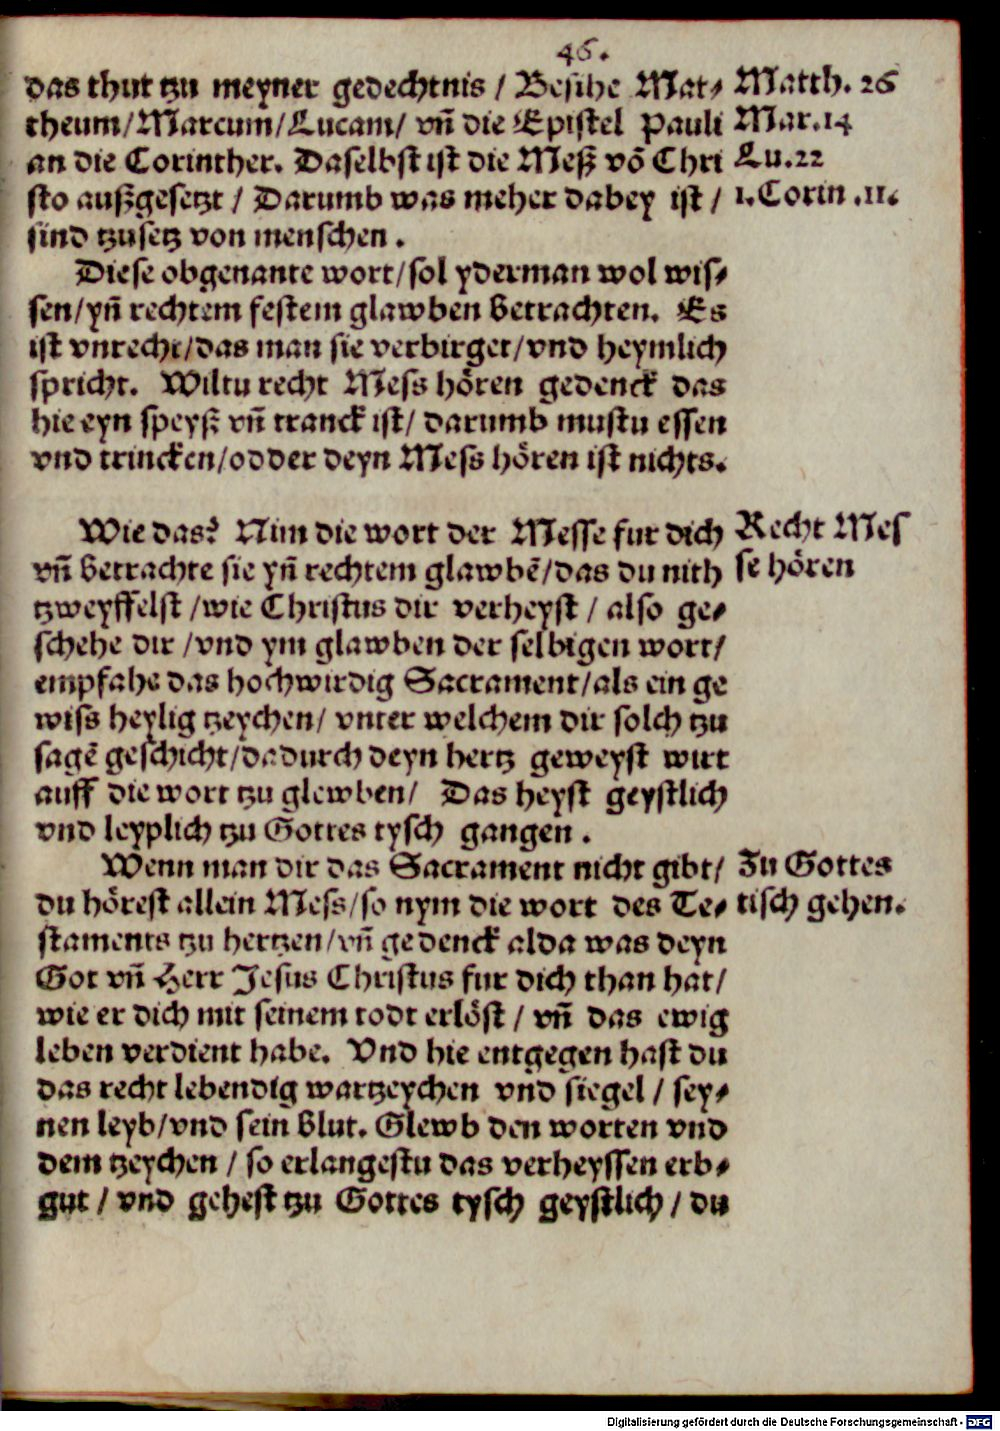 46.
das thut tzu meyner gedechtnis / Besihe Mat⸗
theum/Marcum/Lucam/ vn̄ die Epistel Pauli
an die Corinther. Daselbst ist die Meß võ Chri
sto außgesetzt / Darumb was meher dabey ist /
sind tzusetz von menschen .
Matth. 26
Mar.14
Lu.22
1.Corin .11.
Diese obgenante wort/sol yderman wol wis⸗
sen/yn̄ rechtem festem glawben betrachten. Es
ist vnrecht/das man sie verbirget/vnd heymlich
spricht. Wiltu recht Mess hören gedenck das
hie eyn speyß vn̄ tranck ist/ darumb mustu essen
vnd trincken/odder deyn Mess hören ist nichts.
Wie das? Nim die wort der Messe fur dich
vn̄ betrachte sie yn̄ rechtem glawbẽ/das du nith
tzweyffelst /wie Christus dir verheyst / also ge⸗
schehe dir /vnd ym glawben der selbigen wort/
empfahe das hochwirdig Sacrament/als ein ge
wiss heylig tzeychen/ vnter welchem dir solch tzu
sagẽ geschicht/dadurch deyn hertz geweyst wirt
auff die wort tzu glewben/ Das heyst geystlich
vnd leyplich tzu Gottes tysch gangen .
Recht Mes
se hören
Wenn man dir das Sacrament nicht gibt/
du hörest allein Mess/so nym die wort des Te⸗
staments tzu hertzen/vn̄ gedenck alda was deyn
Got vn̄ Herr Jesus Christus fur dich than hat/
wie er dich mit seinem todt erlöst / vn̄ das ewig
leben verdient habe. Vnd hie entgegen hast du
das recht lebendig wartzeychen vnd siegel / sey⸗
nen leyb/vnd sein blut. Glewb den worten vnd
dem tzeychen / so erlangestu das verheyssen erb⸗
gut / vnd gehest tzu Gottes tysch geystlich / du
Zu Gottes
tisch gehen.
Digitalisierung gefördert durch die Deutsche Forschungsgemeinschaft - DFG